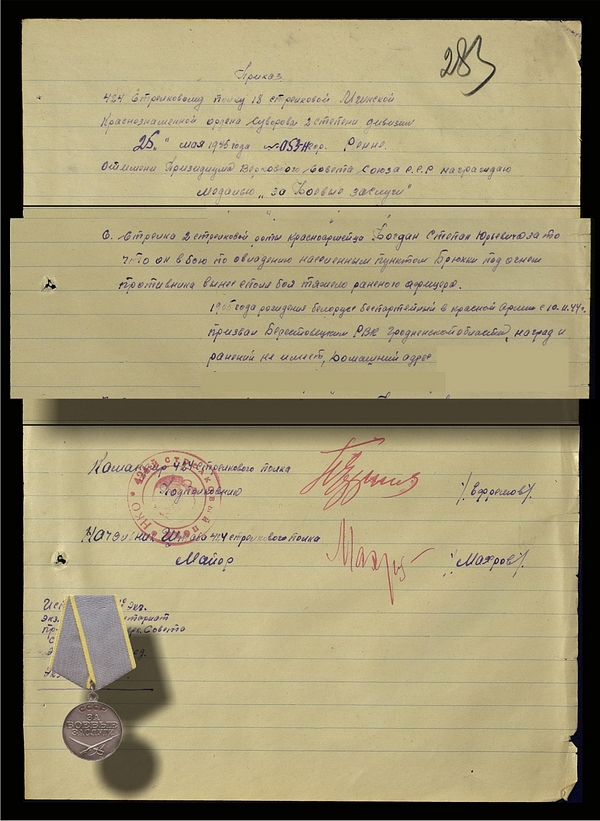 283
Приказ
424 Стрелковому полку 18 стрелковой Мгинской
Краснознаменной ордена Суворова 2 степени дивизии
"26" мая 1945 года № 053/н гор. Ренне.
От имени Президиума Верховного Совета Союза С.С.Р награждаю
Медалью "За Боевые заслуги"
6. Стрелка 2 стрелковой роты красноармейца Богдан Степан Юрьевича за то
что он в бою по овладению населенным пунктом Брюкки под огнем
противника вынес с поля боя тяжело раненого афицера.
года рождения белорус беспартейный в красной Армии с 10.11.44г.
призван Берестовецким РВК Гродненской области, наград и
ранений не имеет, Домашний адрес
Командир 424 стрелкового полка
424й стрелковый полк
НКО
Подполковник /Ефремов/.
Начальник Штаба 424 стрелкового полка
Майор /Махров/.
Экз.
Совета
СССР
ЗА
БОЕВЫЕ
ЗАСЛУГИ